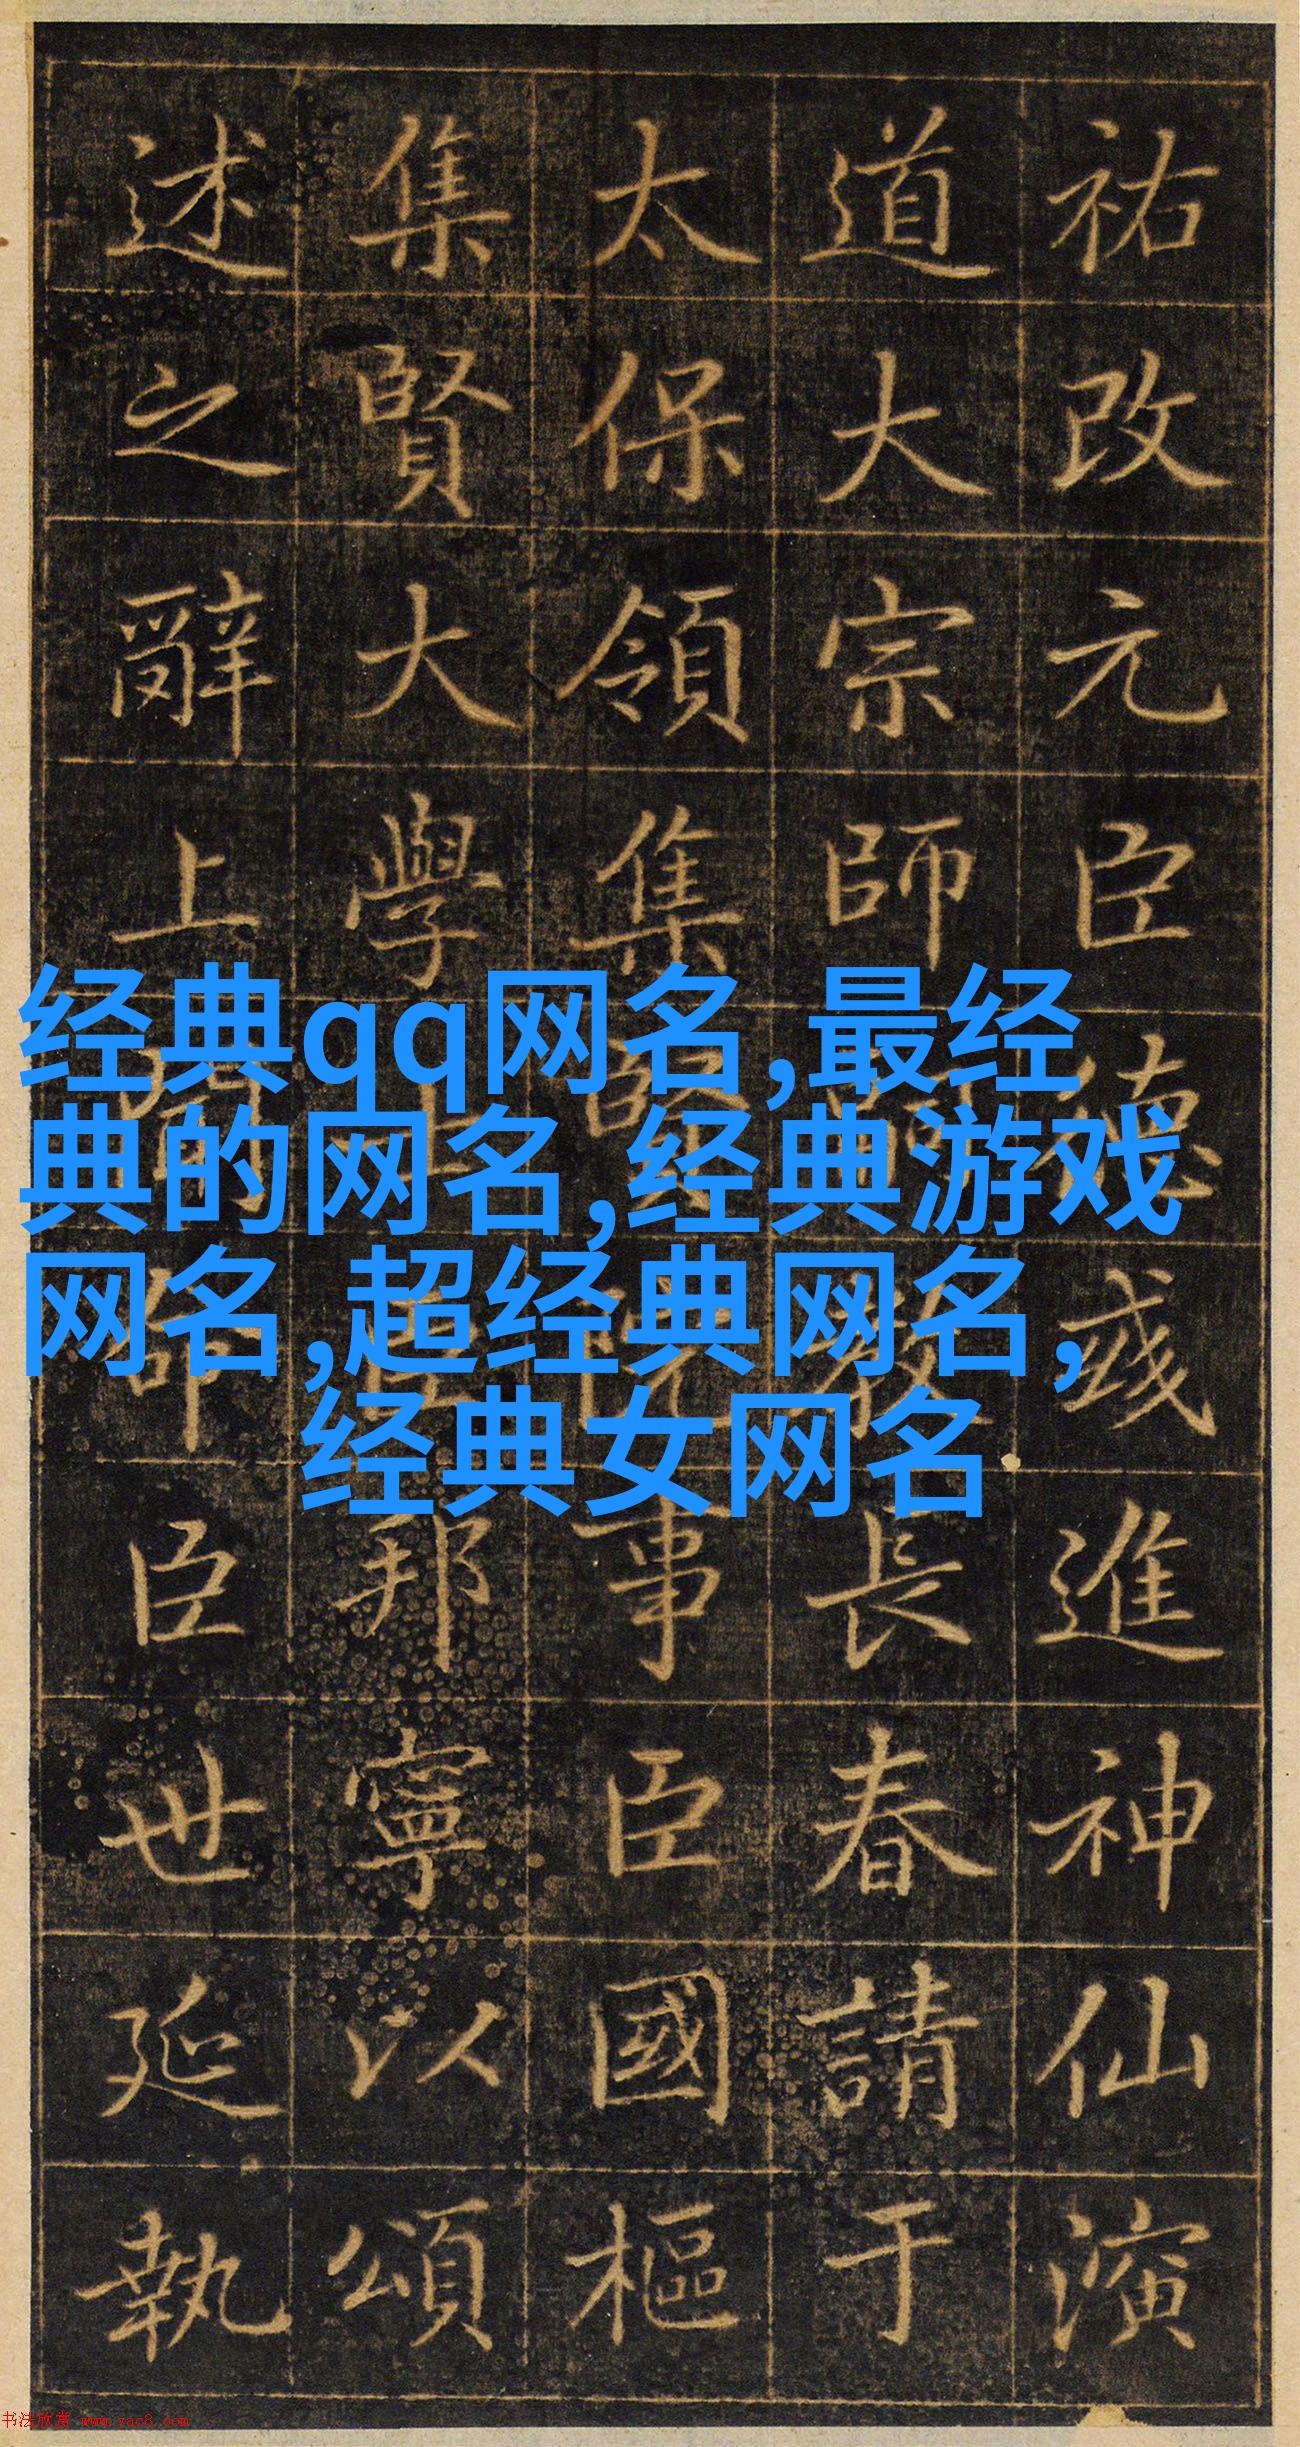 祐改元臣德彧進神仙演
道大宗師教長春請于
太保領集賢院事臣國樞
集賢大學士臣邦寧以頌
述之辭上聞命臣世延執
经典qq网名,最经
典的网名,经典游戏
网名,超经典网名,
经典女网名
书法欣赏 www.yac8.com